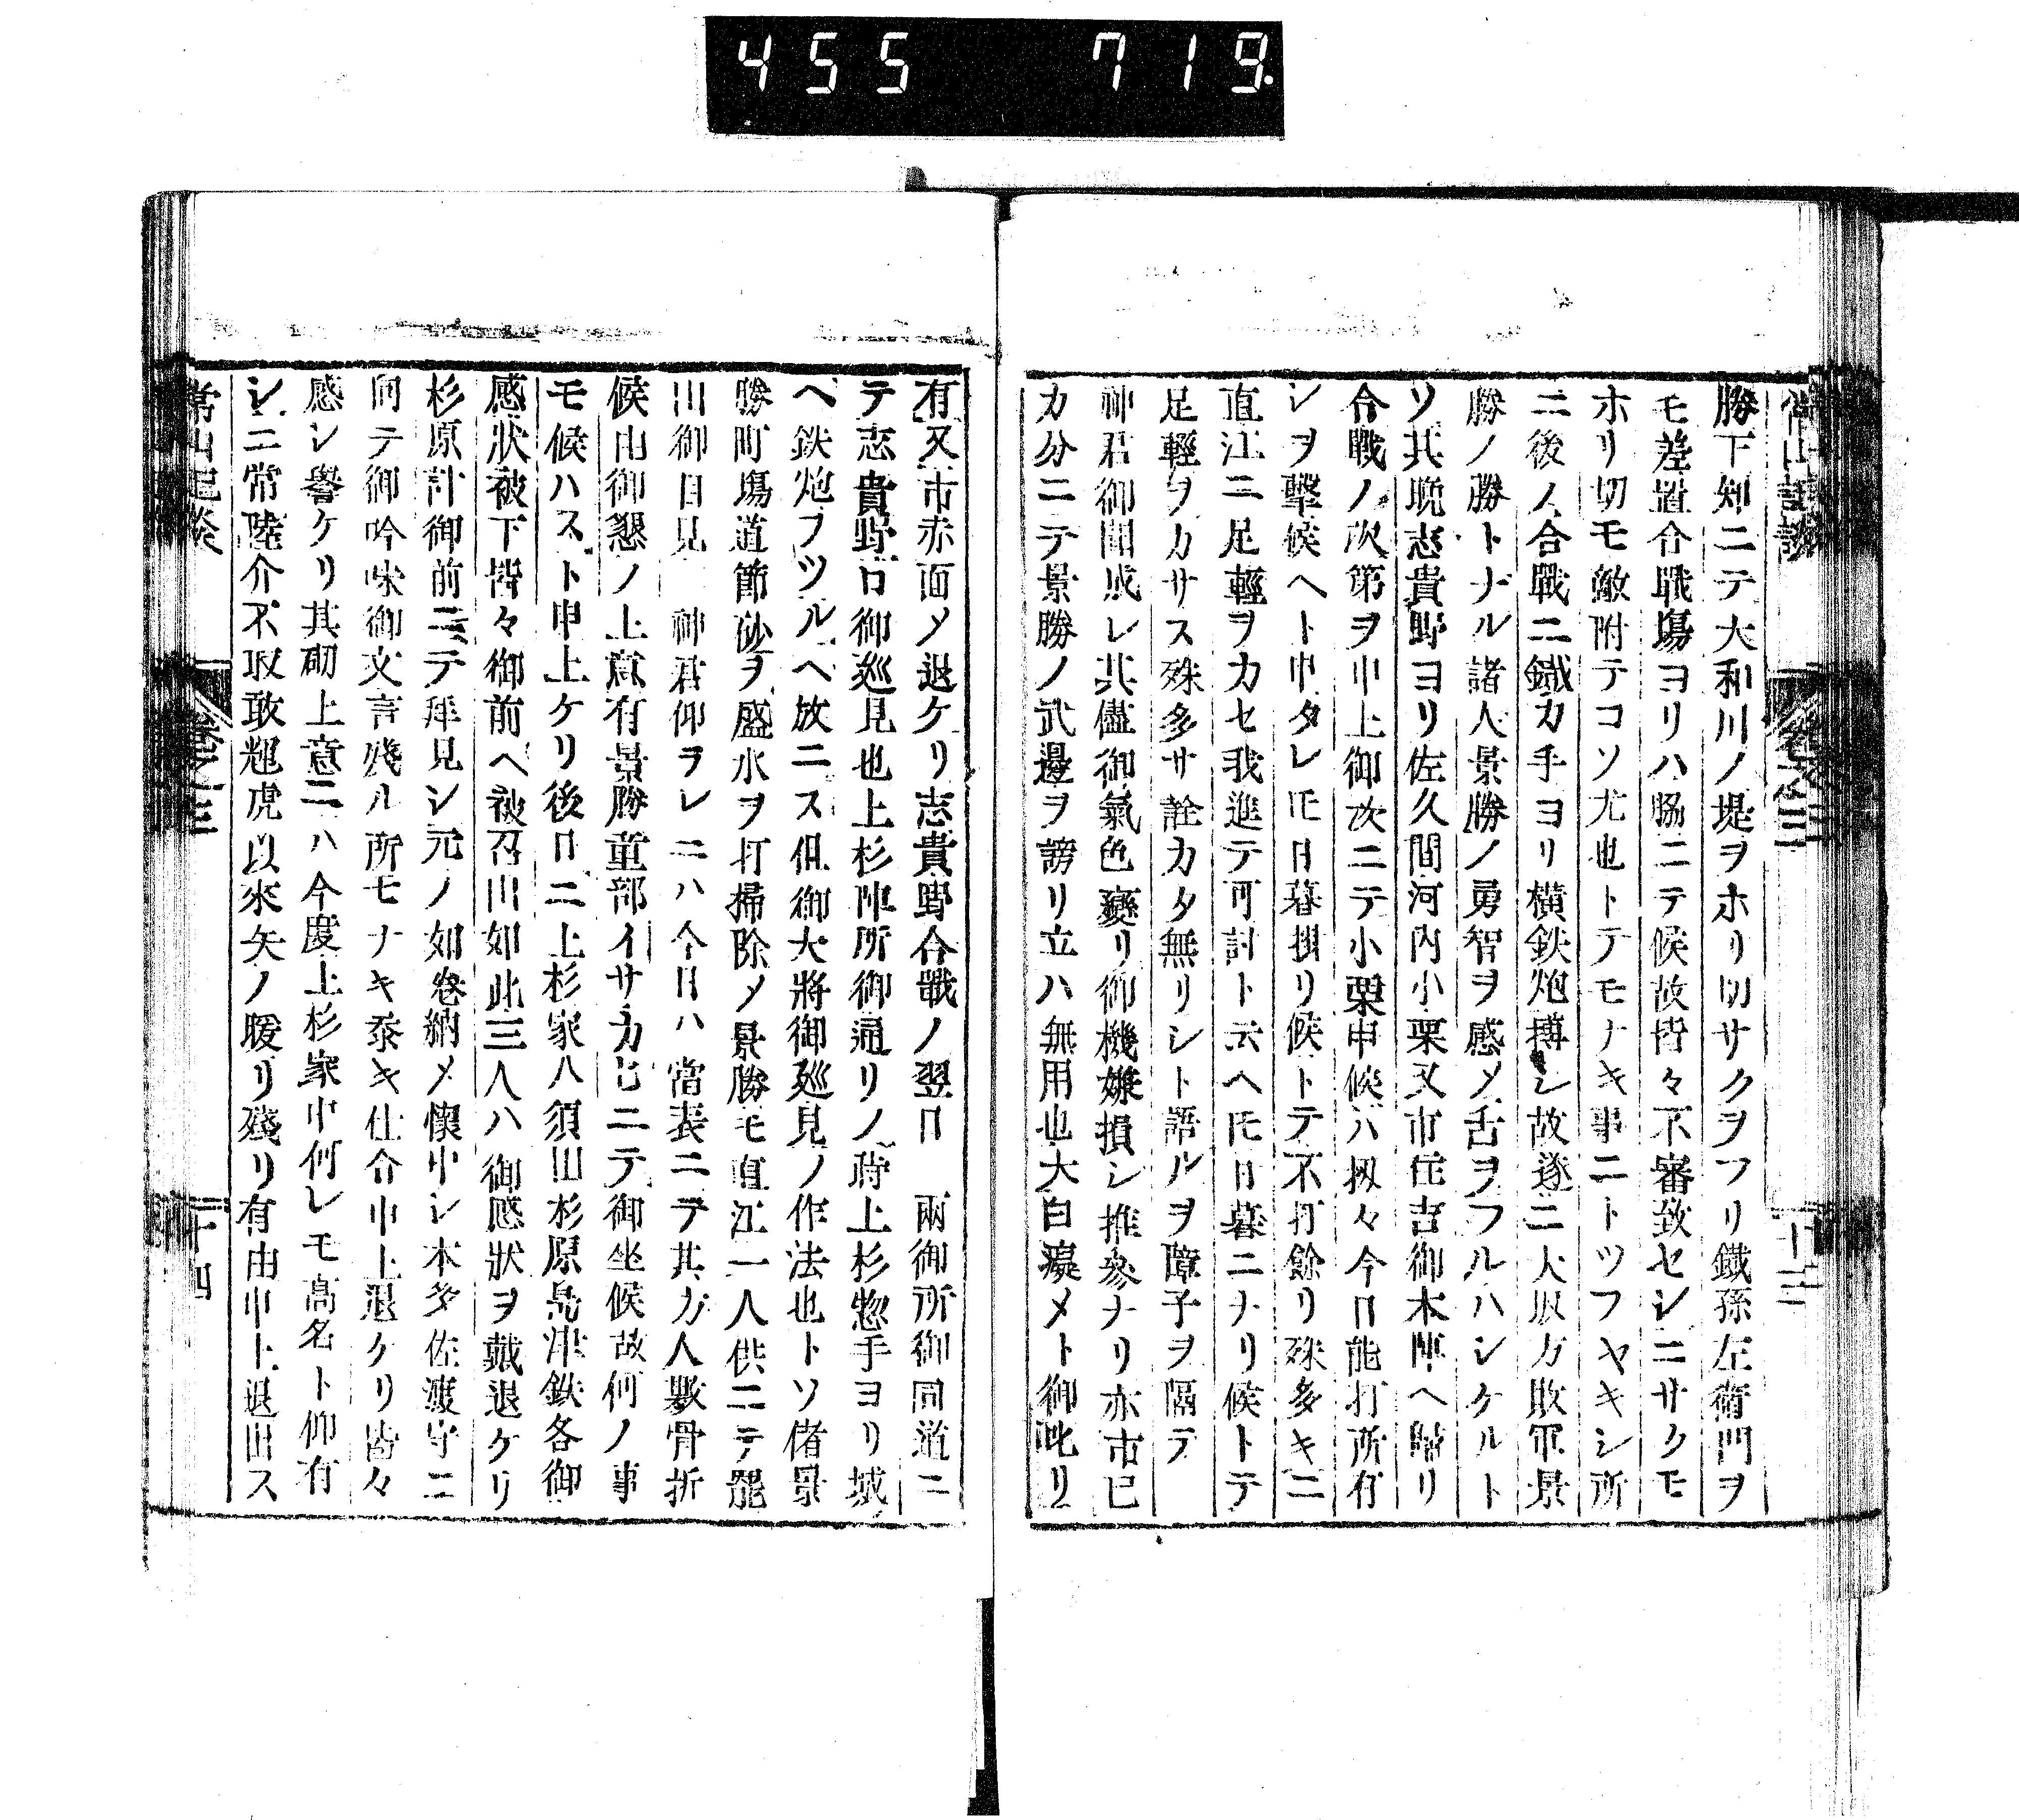 455 719
勝下知ニテ大和川ノ堤ヲホリ切サクヲフリ鐵孫左衛門ヲ
モ差置合戰塲ヨリハ脇ニテ候故皆々不審致セシニサクモ
ホリ切モ敵附テコソ尤也トテモナキ事ニトツフヤキシ所
ニ後ノ合戰ニ鐵カ手ヨリ横鉄炮摶シ故遂ニ大坂方敗軍景
勝ノ勝トナル諸人景勝ノ勇智ヲ感メ舌ヲフルハシケルト
ソ其晩志貴野ヨリ佐久間河内小栗又市住吉御本陣ヘ歸リ
合戰ノ次第ヲ申上御次ニテ小栗申候ハ扨々今日能打所有
シヲ撃候ヘト申タレ𪜈日暮掛リ候トテ不打餘リ殊多キニ
直江ニ足輕ヲカセ我進テ可討ト云ヘ𪜈日暮ニナリ候トテ
足輕ヲカサス殊多サ詮カタ無リシト語ルヲ障子ヲ隔テ
神君御聞成レ其儘御氣色變リ御機嫌損シ推參ナリ亦市已
カ分ニテ景勝ノ武邊ヲ謗リ立ハ無用也大白癡メト御𠮟リ
有又市赤面メ退ケリ志貴野合戰ノ翌日 兩御所御同道ニ
テ志貴野口御巡見也上杉陣所御通リノ時上杉惣手ヨリ城
ヘ鉄炮ヲツルヘ放ニス但御大將御廵見ノ作法也トソ偖景
勝町塲道節砂ヲ盛水ヲ打掃除メ景勝モ直江一人供ニテ罷
出御目見 神君仰ヲレニハ今日ハ當表ニテ其方人數骨折
候由御懇ノ上意有景勝童部イサカヒニテ御坐候故何ノ事
モ候ハスト申上ケリ後日ニ上杉家八須田杉原島津鉄各御
感狀被下皆々御前ヘ被召出如此三人ハ御感狀ヲ戴退ケリ
杉原計御前ニテ拜見シ元ノ如卷納メ懷中シ本多佐渡守ニ
向テ御吟味御文言殘ル所モナキ忝キ仕合申上退ケリ皆々
感シ譽ケリ其砌上意ニハ今度上杉家中何レモ高名ト仰有
シニ常陸介不取敢輝虎以來矢ノ暖リ殘リ有由申上退出ス
常山紀談 卷之三 十四